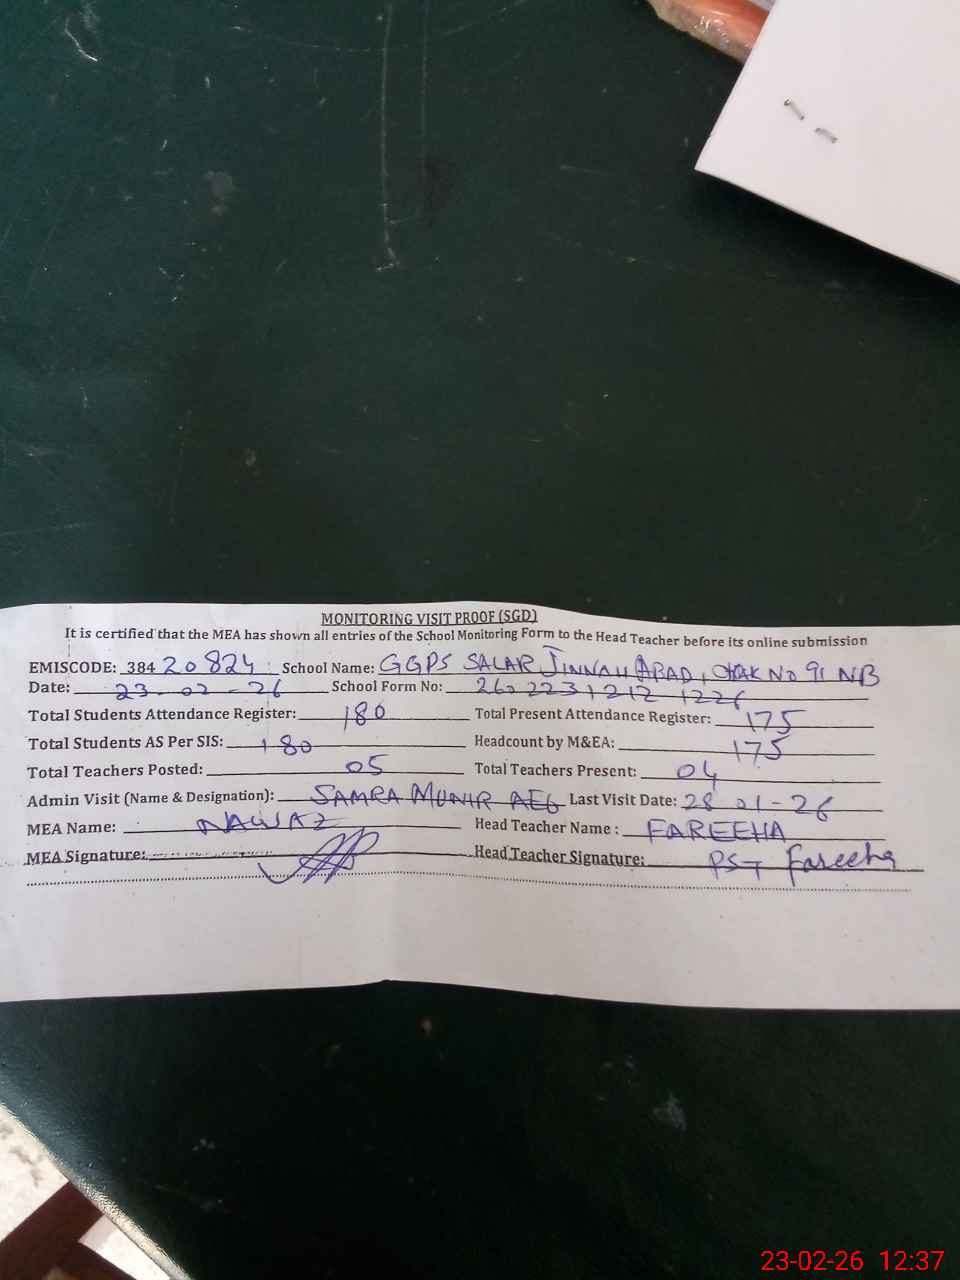 MONITORING VISIT PROOF (SGD)
It is certified that the MEA has shown all entries of the School Monitoring Form to the Head Teacher before its online submission
EMISCODE: 384 20824 School Name: GGPS SALAR JINNAH ABAD, CHAK NO 91 NB
Date: 23-02-26 School Form No: 260223 1212 1226
Total Students Attendance Register: 180 Total Present Attendance Register: 175
Total Students AS Per SIS: 180 Headcount by M&EA: 175
Total Teachers Posted: 05 Total Teachers Present: 04
Admin Visit (Name & Designation): SAMRA MUNIR AEO Last Visit Date: 28-01-26
MEA Name: NAWAZ Head Teacher Name : FAREEHA
MEA Signature: Head Teacher Signature: PST Fareeha
23-02-26 12:37